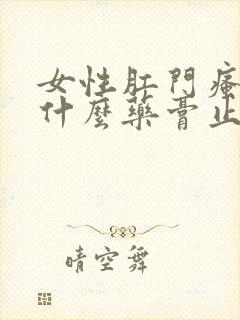 女性肛門瘙
什麼藥膏止
晴空舞